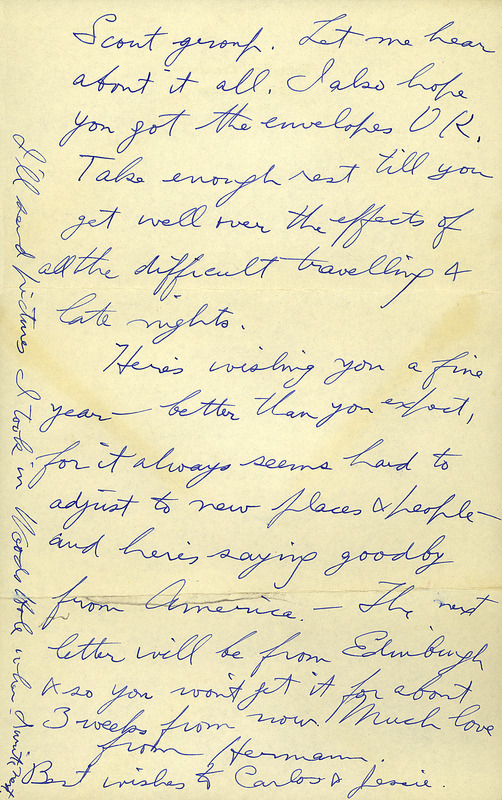 Scout group. Let me hear
about it all. I also hope
you got the envelopes O.K.
Take enough rest till you
get well over the effects of
all the difficult travelling &
late nights.
Here's wishing you a fine
year — better than you expect,
for it always seems hard to
adjust to new places & people —
and here's saying goodby
from America. — The next
letter will be from Edinburgh
& so you won't get it for about
3 weeks from now. Much love
from Hermann.
Best wishes to Carlos & Jessie.
I'll send pictures I took in Woods Hole when I write next